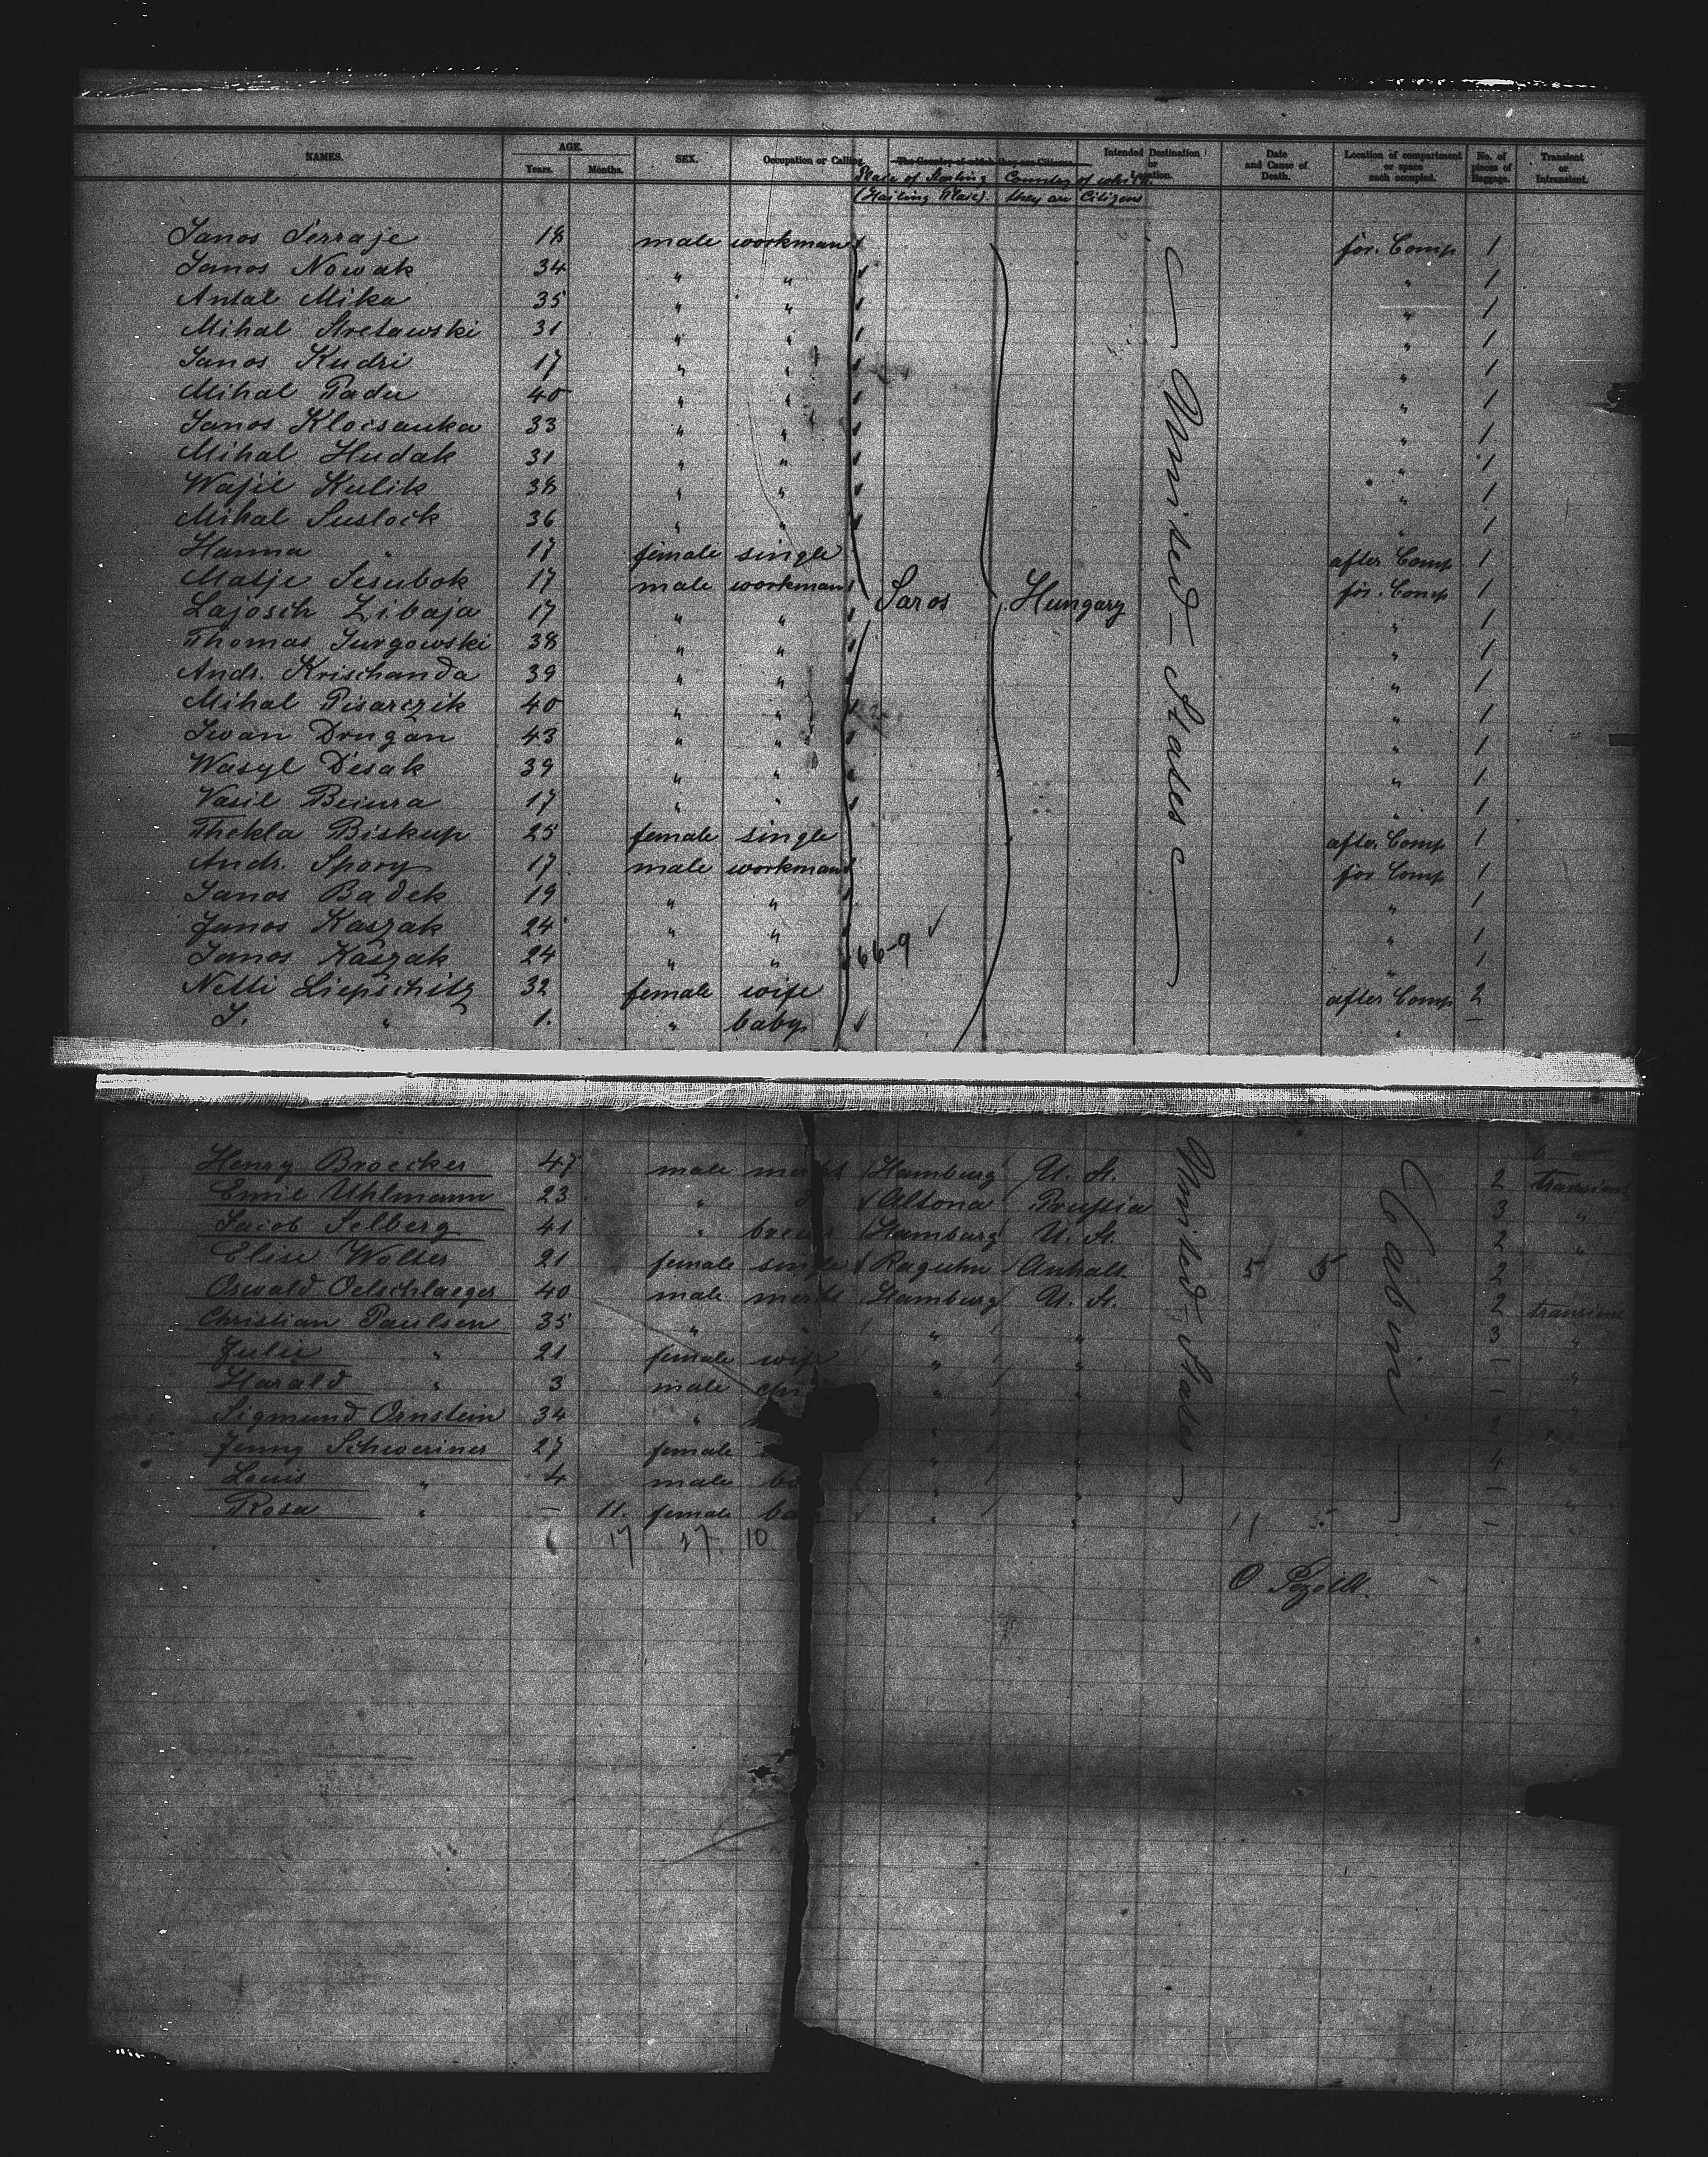 NAMES. AGE. SEX. Occupation or Calling. The Country of which they are Citizens. Intended Destination or Location. Date and Cause of Death. Location of compartment or space each occupied. No. of pieces of Baggage. Transient or Intransient.
Years. Months.
Place of Starting Country of which
(Hailing Place). they are Citizens
Janos Serraje 18 male workman for. Comp 1
Janos Nowak 34 " " " 1
Antal Mika 35 " " " 1
Mihal Stretawski 31 " " " 1
Janos Kudri 17 " " " 1
Mihal Padu 40 " " " 1
Janos Klocsanka 33 " " " 1
Mihal Hudak 31 " " " 1
Wasil Kulik 38 " " " 1
Mihal Suslock 36 " " " 1
Hanna " 17 female single after Comp 1
Matje Sesubok 17 male workman Saros Hungary United States for. Comp 1
Lajosch Zibaja 17 " " " 1
Thomas Jurgowski 38 " " " 1
Andr. Krischanda 39 " " " 1
Mihal Pisarczik 40 " " " 1
Iwan Drugan 43 " " " 1
Wasyl Desak 39 " " " 1
Vasil Beiura 17 " " " 1
Thekla Biskup 25 female single after Comp 1
Andr. Spory 17 male workman for Comp 1
Janos Badek 19 " " " 1
Janos Kaszak 24 " " " 1
Janos Kaszak 24 " " 66-9 " 1
Netti Liepschitz 32 female wife after Comp 2
S. " 1. " baby " —
Henry Broecker 47 male Hamburg U. St. 2 transient
Emil Uhlmann 23 " Altona Preussia 3 "
Jacob Selberg 41 " Hamburg U. St. 2 "
Elise Wolter 21 female single Raguhn Anhalt 5 5 2
Oswald Oelschlaeger 40 male Hamburg U. St. 2 transient
Christian Paulsen 35 " " " 3 "
Julie " 21 female wife " " — "
Harald " 3 male " " — "
Sigmund Ornstein 34 " 2
Jenny Schweriner 27 female " " 4 "
Louis " 4 male " " — "
Rosa " — 11. female " " — "
United States
Cabin
17 27. 10
11 5